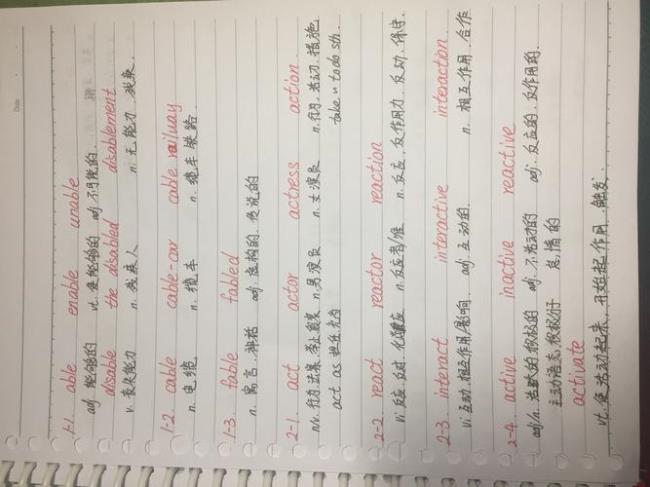 1-1. able enable unable
adj 能够的 vt. 使能够的 adj 不可能的.
disable the disabled disablement
v. 丧失能力 n. 残疾人 n. 无能力. 残疾.
1-2. cable cable-car cable railway
n. 电缆 n. 缆车 n. 缆车铁路.
1-3. fable fabled
n. 寓言. 神话 adj. 虚构的. 传说的
2-1. act actor actress action
n/v. 行为 法案. 举止 n 男演员 n. 女演员 n. 行为. 活动. 措施
act as 担任 充当 take ~ to do sth.
2-2. react reactor reaction
vi 反应 反对. n. 反应者/堆 n. 反应. 反作用力. 反动. 保守.
2-3. interact interactive interaction
vi 互动. 相互作用/影响 adj 互动的. n. 相互作用. 合作
2-4. active inactive reactive
adj/n. 活跃的 积极的 adj. 不活动的 adj. 反应的. 反作用的.
主动语态. 积极分子 怠惰的
activate
vt. 使活动起来, 开始起作用. 触发.